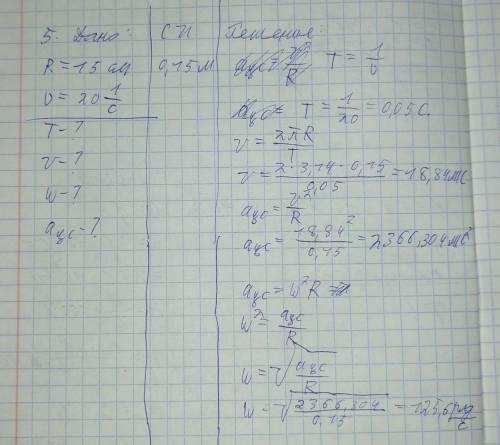 5. Дано: СИ Решение:
R = 15 см 0,15 м a_цс = v²/R T = 1/υ
υ = 20 1/с
a_цс = T = 1/20 = 0,05 с.
T - ? v = 2πR/T
v - ? v = 2 · 3,14 · 0,15/0,05 = 18,84 м/с
w - ? a_цс = v²/R
a_цс - ? a_цс = 18,84²/0,15 = 2366,304 м/с²
a_цс = w²R =
w² = a_цс/R
w = √(a_цс/R)
w = √(2366,304/0,15) = 125,6 рад/с